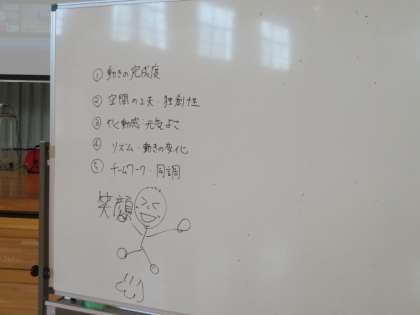 ① 動きの完成度
② 空間の工夫・独創性
③ やく動感 元気よさ
④ リズム・動きの変化
⑤ チームワーク・同調
笑顔